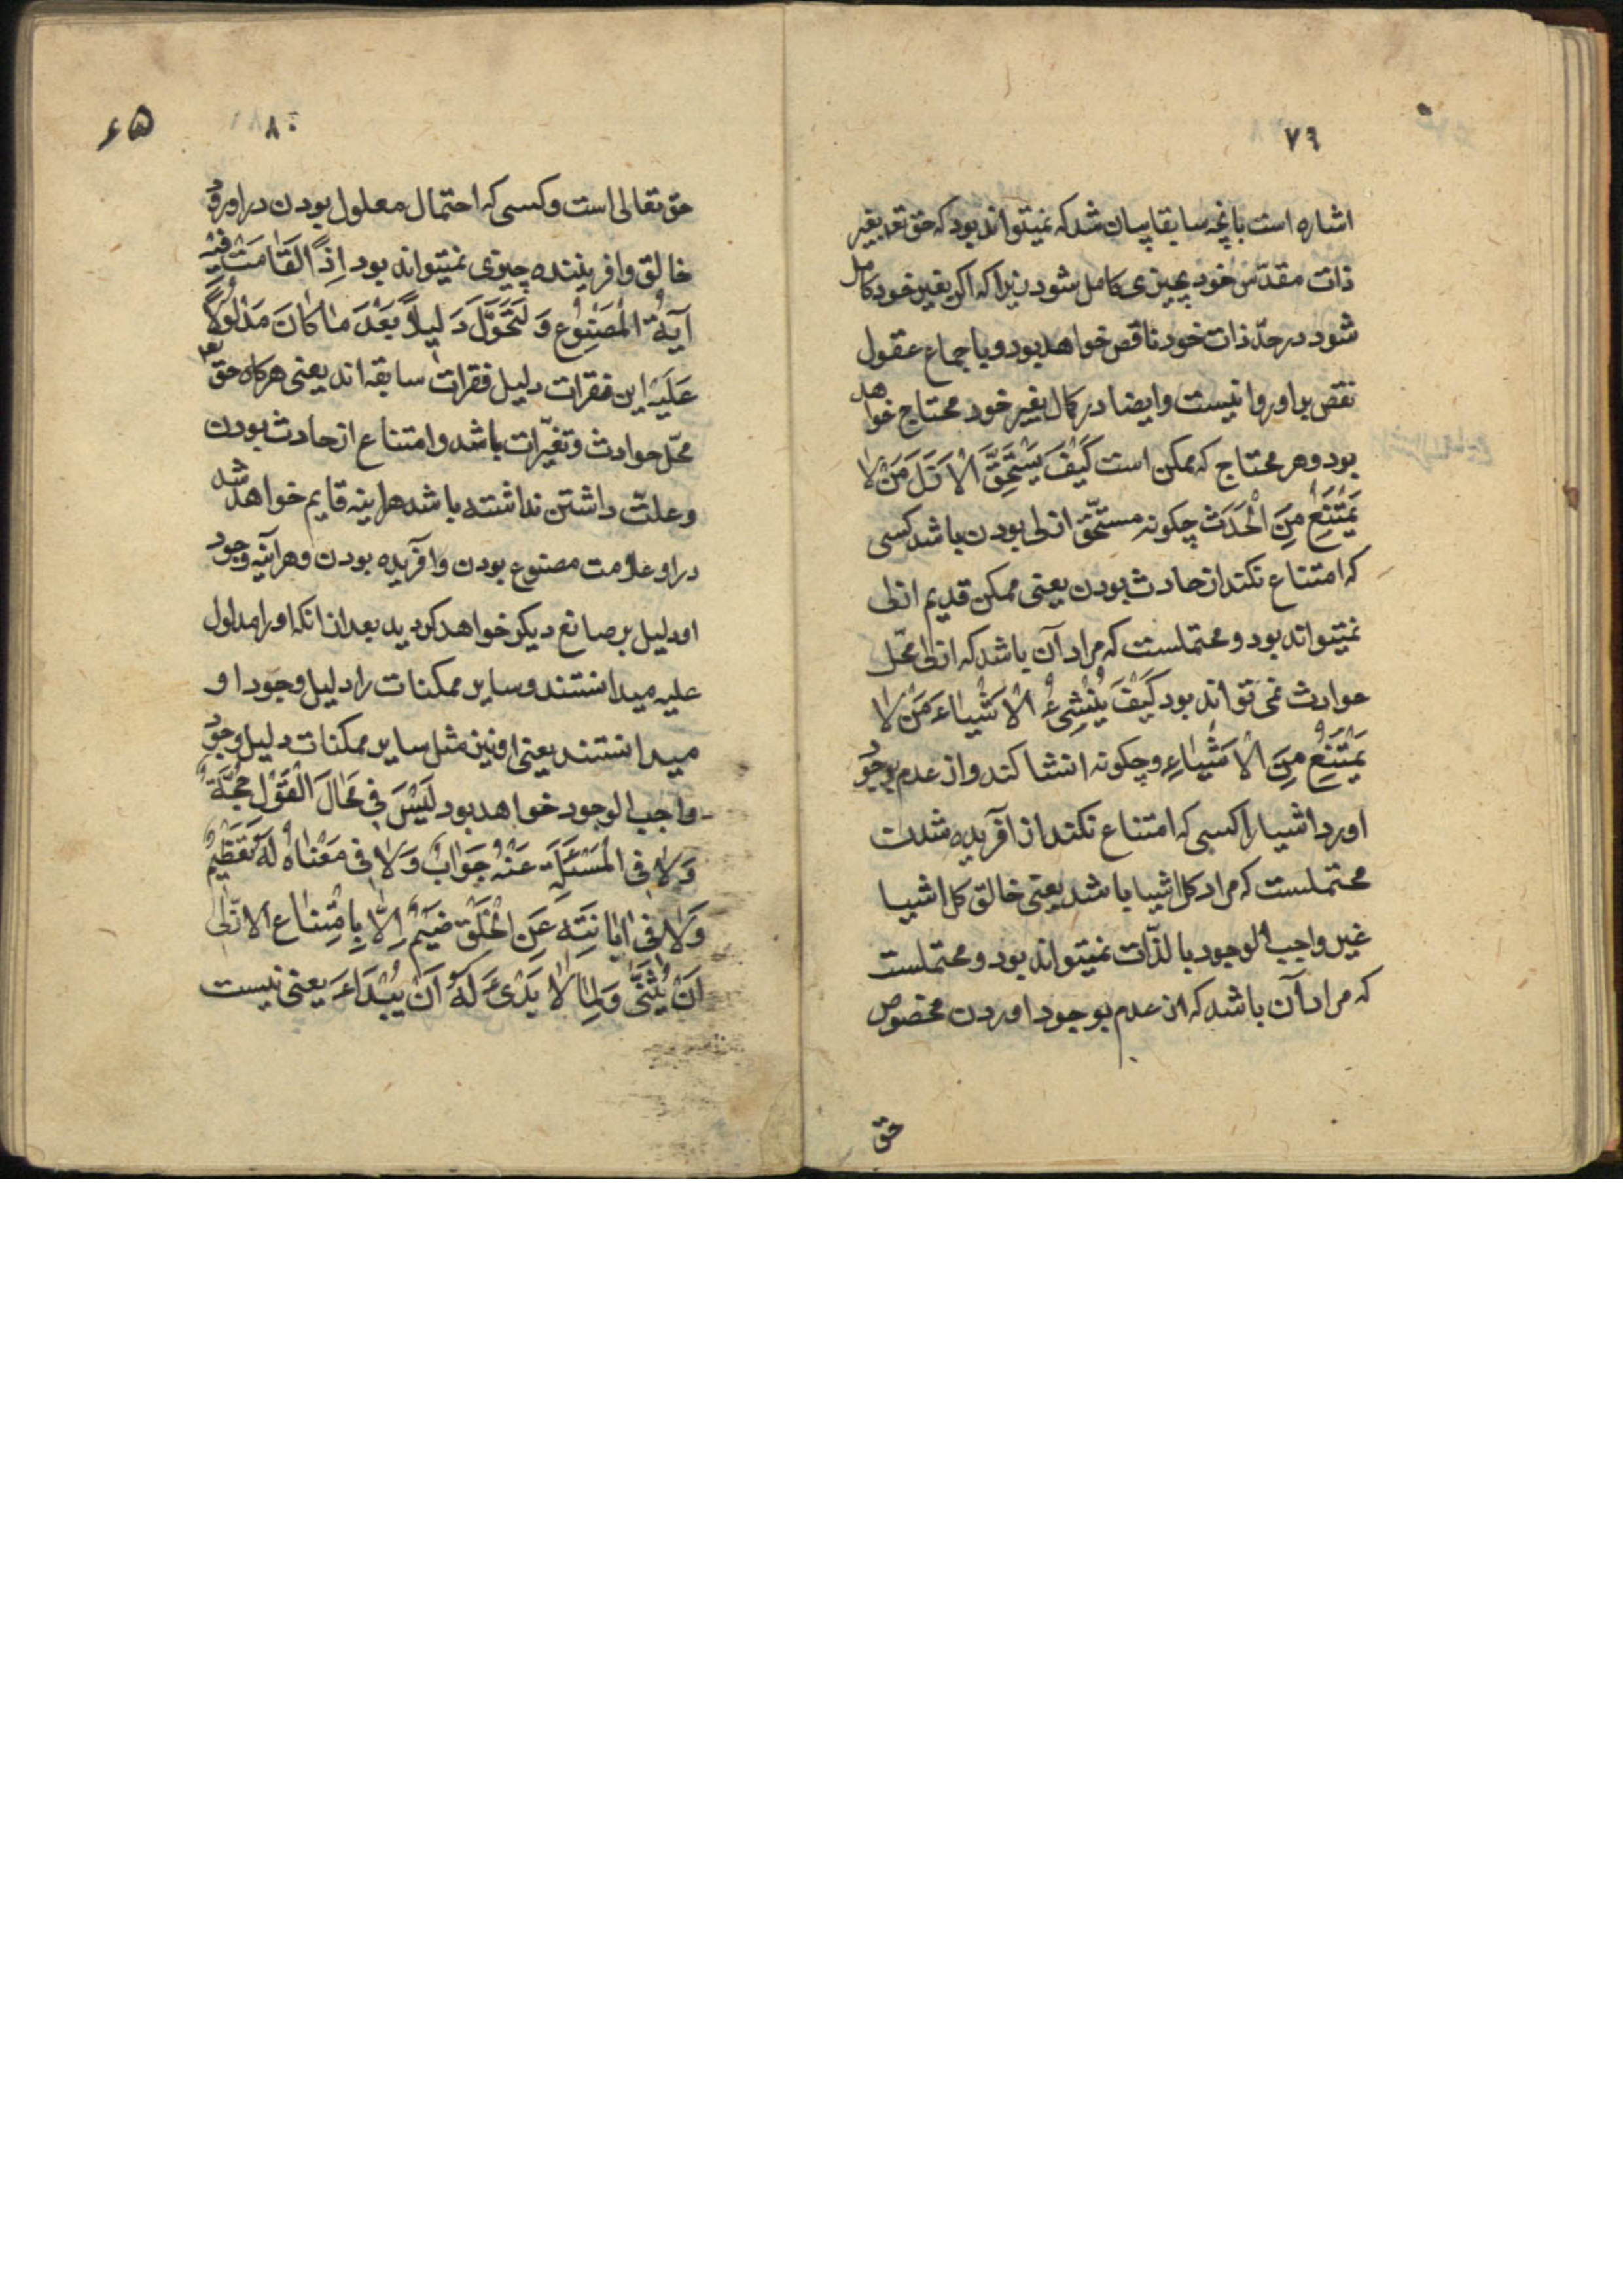 ۷۹
اشاره است بانچه سابقا بیان شد که نمیتواند بود که حق تعه بغیر
ذات مقدّس خود بچیزی کامل شود زیرا که اکر بغیر خود کامل
شود در حدّ ذات خود ناقص خواهد بود و باجماع عقول
نقص بر او روا نیست و ایضا در کمال بغیر خود محتاج خواهد
بود و هر محتاج که ممکن است کَیْفَ یَسْتَحِقُّ الْاَزَلَ مَنْ لا
یَمْتَنِعُ مِنَ الْحَدَثِ چکونه مستحقّ ازلی بودن باشد کسی
که امتناع نکند از حادث بودن یعنی ممکن قدیم ازلی
نمیتواند بود و محتملست که مراد آن باشد که ازلی محّل
حوادث نمی تواند بود کَیْفَ یُنْشِیءُ الْاَشْیاءَ مَنْ لا
یَمْتَنِعُ مِنَ الْاَشْیاءِ و چکونه انشا کند و از عدم بوجود
اورد اشیا را کسی که امتناع نکند از آفریده شدن
محتملست که مراد کل اشیا باشد یعنی خالق کل اشیا
غیر واجب الوجود بالذّات نمیتواند بود و محتملست
که مراد آن باشد که از عدم بوجود اوردن مخصوص
حق
۸۰
۶۵
حق تعالی است و کسی که احتمال معلول بودن در او رود
خالق و افریننده چیزی نمیتواند بود اِذًا لَقامَتْ فیْهِ
آیَةُ الْمَصْنُوْعِ وَ لَتَحَوَّلَ دَلیلاً بَعْدَ ما کانَ مَدْلُوْلاً
عَلَیْهِ این فقرات دلیل فقرات سابقه اند یعنی هرکاه حق تعه
محّل حوادث و تغیّرات باشد و امتناع از حادث بودن
و علّت داشتن نداشته باشد هراینه قایم خواهد شد
در او علامت مصنوع بودن و آفریده بودن و هرآینه وجود
او دلیل بر صانع دیکر خواهد کردید بعد از انکه او را مدلول
علیه میدانستند و سایر ممکنات را دلیل وجود او
میدانستند یعنی او نیز مثل سایر ممکنات دلیل وجود
واجب الوجود خواهد بود لَیْسَ فی مَحالَ الْقَوْلِ حُجَّةٌ
وَلا فی الْمَسْئَلَةِ عَنْهُ جَوابٌ وَلا فی مَعْناهُ لَهُ تَعْظیمٌ
وَلا فی اِبانَتِهِ عَنِ الْخَلْقِ ضَیْمٌ اِلّا بِامْتِناعِ الازَلیّ
اَنْ یُثَنّی وَ لِما لا بَدْیءَ لَهُ اَنْ یُبْدَاءَ یعنی نیست